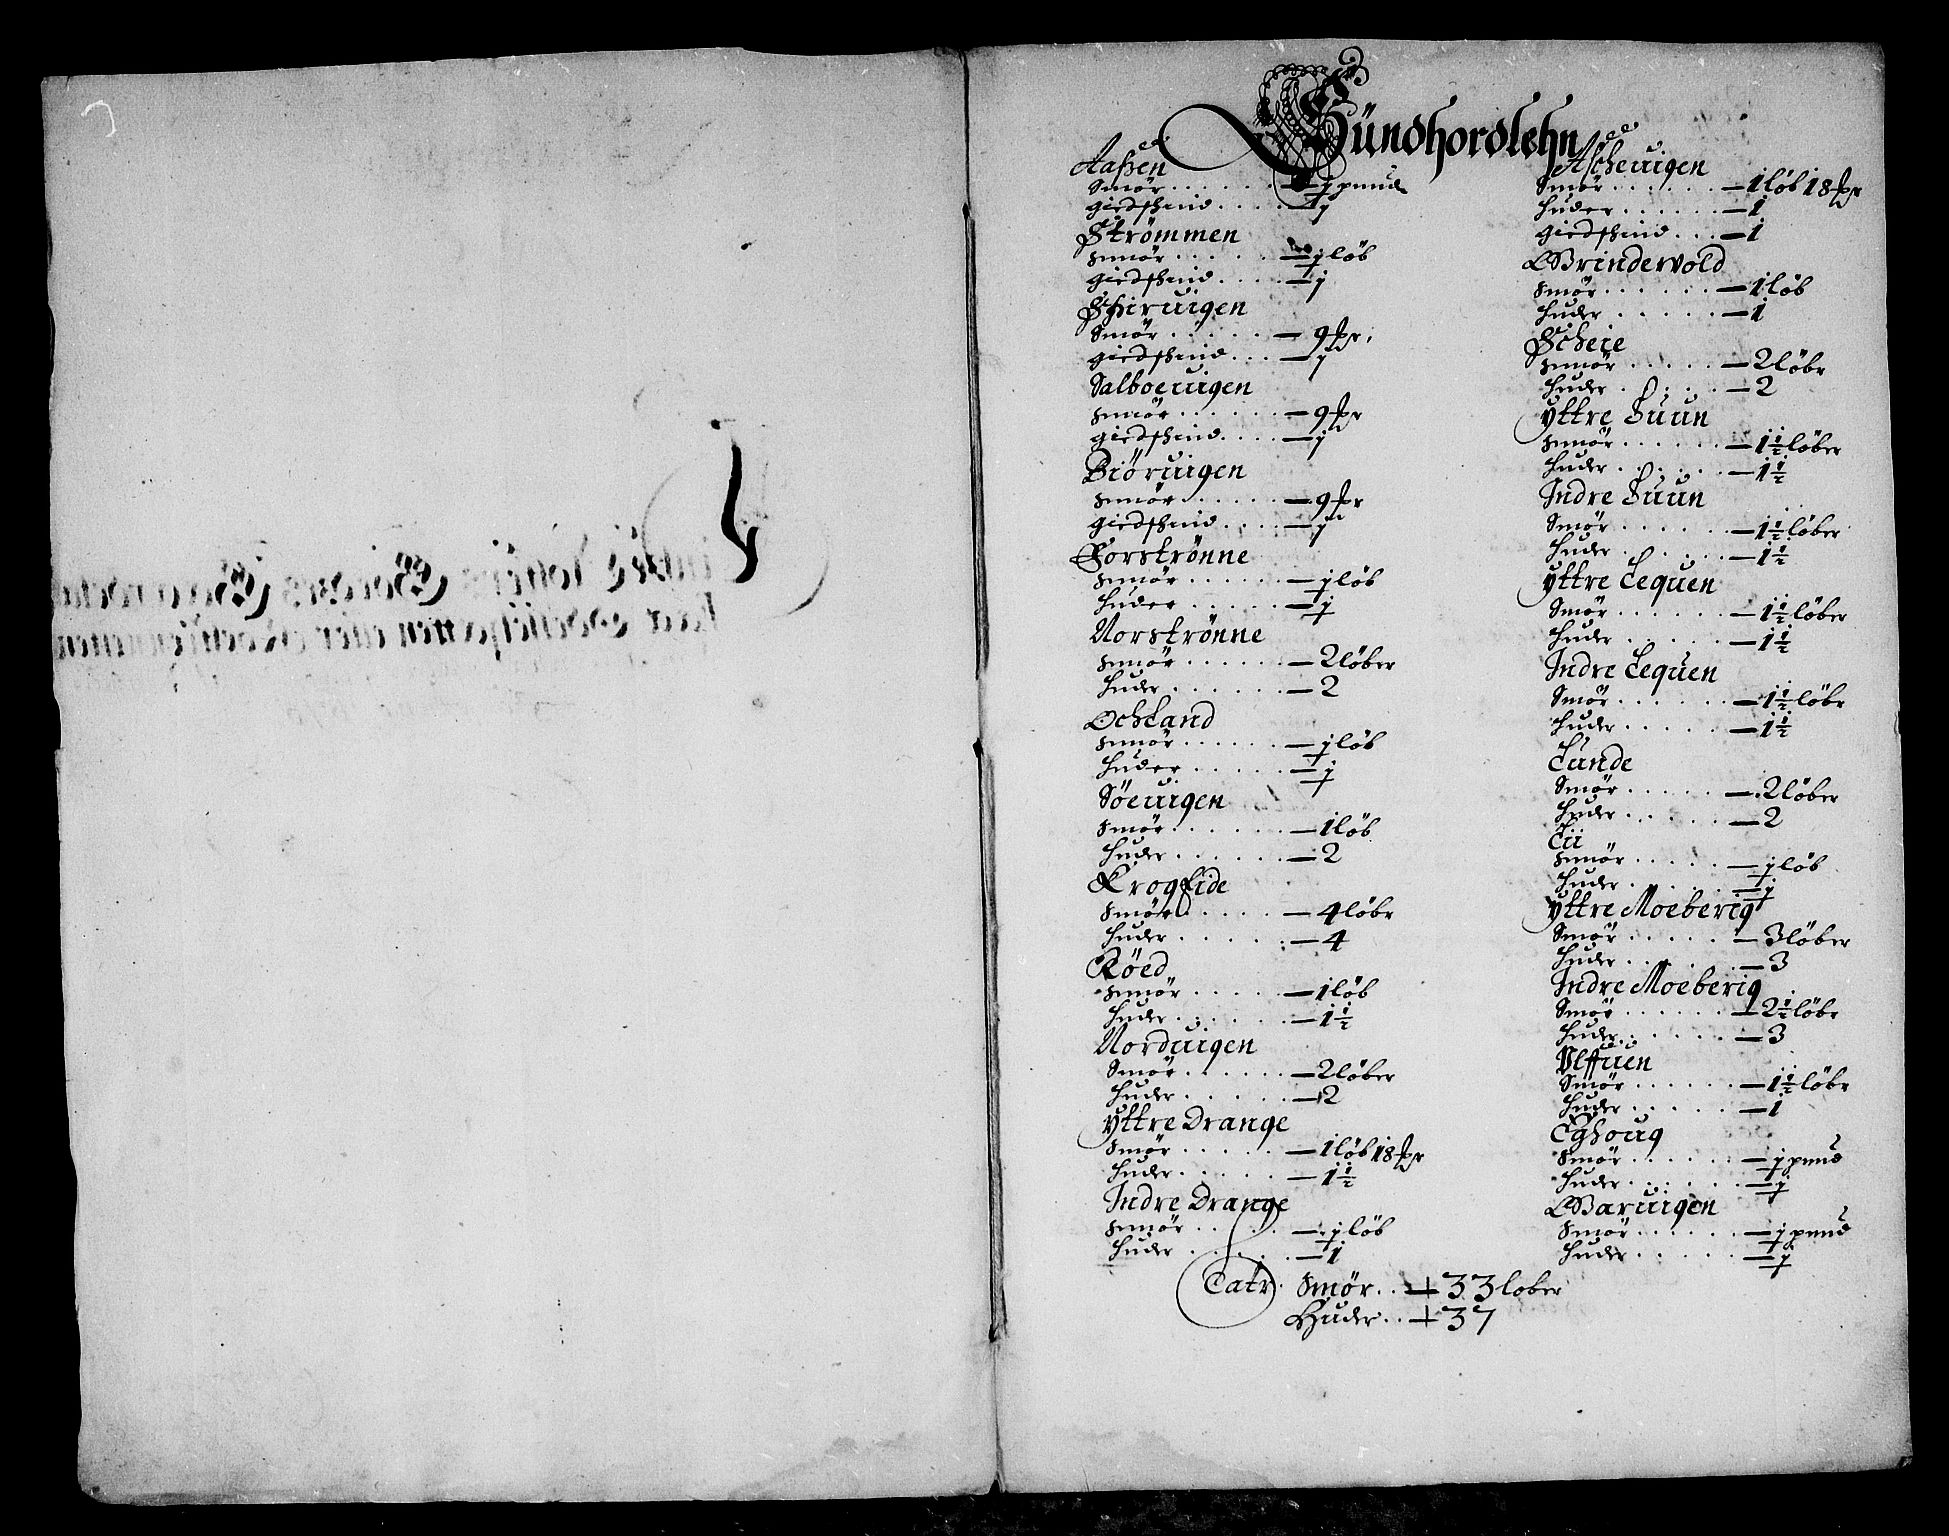 Sündhordlehn
Aaßen
Smør . . . . . . — j pund
giedshind . . . . . — j
Strömmen
smør . . . . . . — j löb
giedshind . . . . — j
Schieruigen
Smør . . . . . . — 9 pr
giedshind . . . — j
Salboeuigen
smør . . . . . . — 9 pr
giedshind . . . . — j
Biöruigen
smør . . . . . . — 9 pr
giedshind . . . . — j
Forströnne
smør . . . . . . — j löb
Huder . . . . . . — j
Norströnne
smør . . . . . . — 2 löber
Huder . . . . . . — 2
Ochland
smør . . . . . . — j löb
Huder . . . . . . — j
Söeuigen
smør . . . . . . — 1 löb
Huder . . . . . . — 2
Kroglide
smør . . . . . — 4 löbr
Huder . . . . . — 4
Röed
smør . . . . . — 1 löb
Huder . . . . . . — 1 1/2
Norduigen
Smør . . . . . . — 2 löber
Huder . . . . . . — 2
Yttre Drange
Smør . . . . . . — 1 löb 18 pr
Huder . . . . . . — 1 1/2
Indre Drange
smør . . . . . — j löb
Huder . . . . . — 1
Ascheuigen
Smør . . . . . . — 1 löb 18 pr
Huder . . . . . . — 1
giedshind . . . — 1
Grindevold
smør . . . . . . — 1 löb
Huder . . . . . — 1
Scheie
smør . . . . . — 2 löbr
Huder . . . . . — 2
Yttre Huun
smør . . . . . . — 1 1/2 löber
Huder . . . . . — 1 1/2
Indre Huun
Smør . . . . . . — 1 1/2 löber
Huder . . . . . — 1 1/2
Yttre Lequen
Smør . . . . . . — 1 1/2 löber
Huder . . . . . — 1 1/2
Indre Lequen
Smør . . . . . . — 1 1/2 löbr
Huder . . . . . . — 1 1/2
Lunde
Smør . . . . . — 2 löber
Huder . . . . . — 2
Lii
smør . . . . . — j löb
Huder . . . . . — j
Yttre Moeberig
Smør . . . . . — 3 löber
Huder . . . . . — 3
Indre Moeberig
Smør . . . . . . — 2 1/2 löbr
Huder . . . . . — 3
Ulffuen
Smør . . . . . . — 1 1/2 löbr
Huder . . . . . — 1
Eghoug
Smør . . . . . . — j pund
Huder . . . . . . — j
Baruigen
Smør . . . . . . — j pund
Huder . . . . . — j
Latr. Smør . . — 33 lober
Huder . . — 37